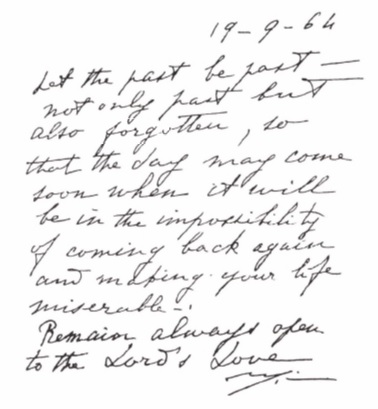 19-9-64
Let the past be past —
not only past but
also forgotten, so
that the day may come
soon when it will
be in the impossibility
of coming back again
and making your life
miserable -.
Remain always open
to the Lord's Love